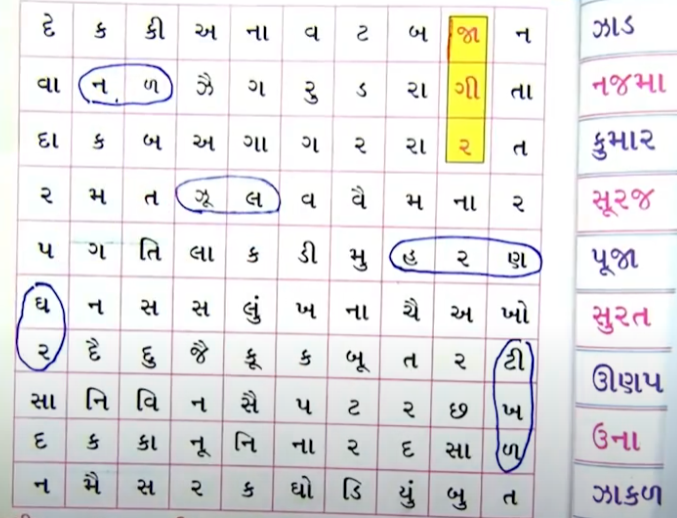 દે ક કી અ ના વ ટ બ જા ન
વા ન ળ ઝૈ ગ રુ ડ રા ગી તા
દા ક બ અ ગા ગ ર રા ર ત
ર મ ત ઝૂ લ વ વૈ મ ના ર
પ ગ તિ લા ક ડી મુ હ ર ણ
ઘ ન સ સ લું ખ ના ચૈ અ ખો
ર દૈ દુ જૈ કૂ ક બૂ ત ર ટી
સા નિ વિ ન સૈ પ ટ ર છ ખ
દ ક કા નૂ નિ ના ર દ સા ળ
ન મૈ સ ર ક ઘો ડિ યું બુ ત
ઝાડ
નજમા
કુમાર
સૂરજ
પૂજા
સુરત
ઊણપ
ઉના
ઝાકળ